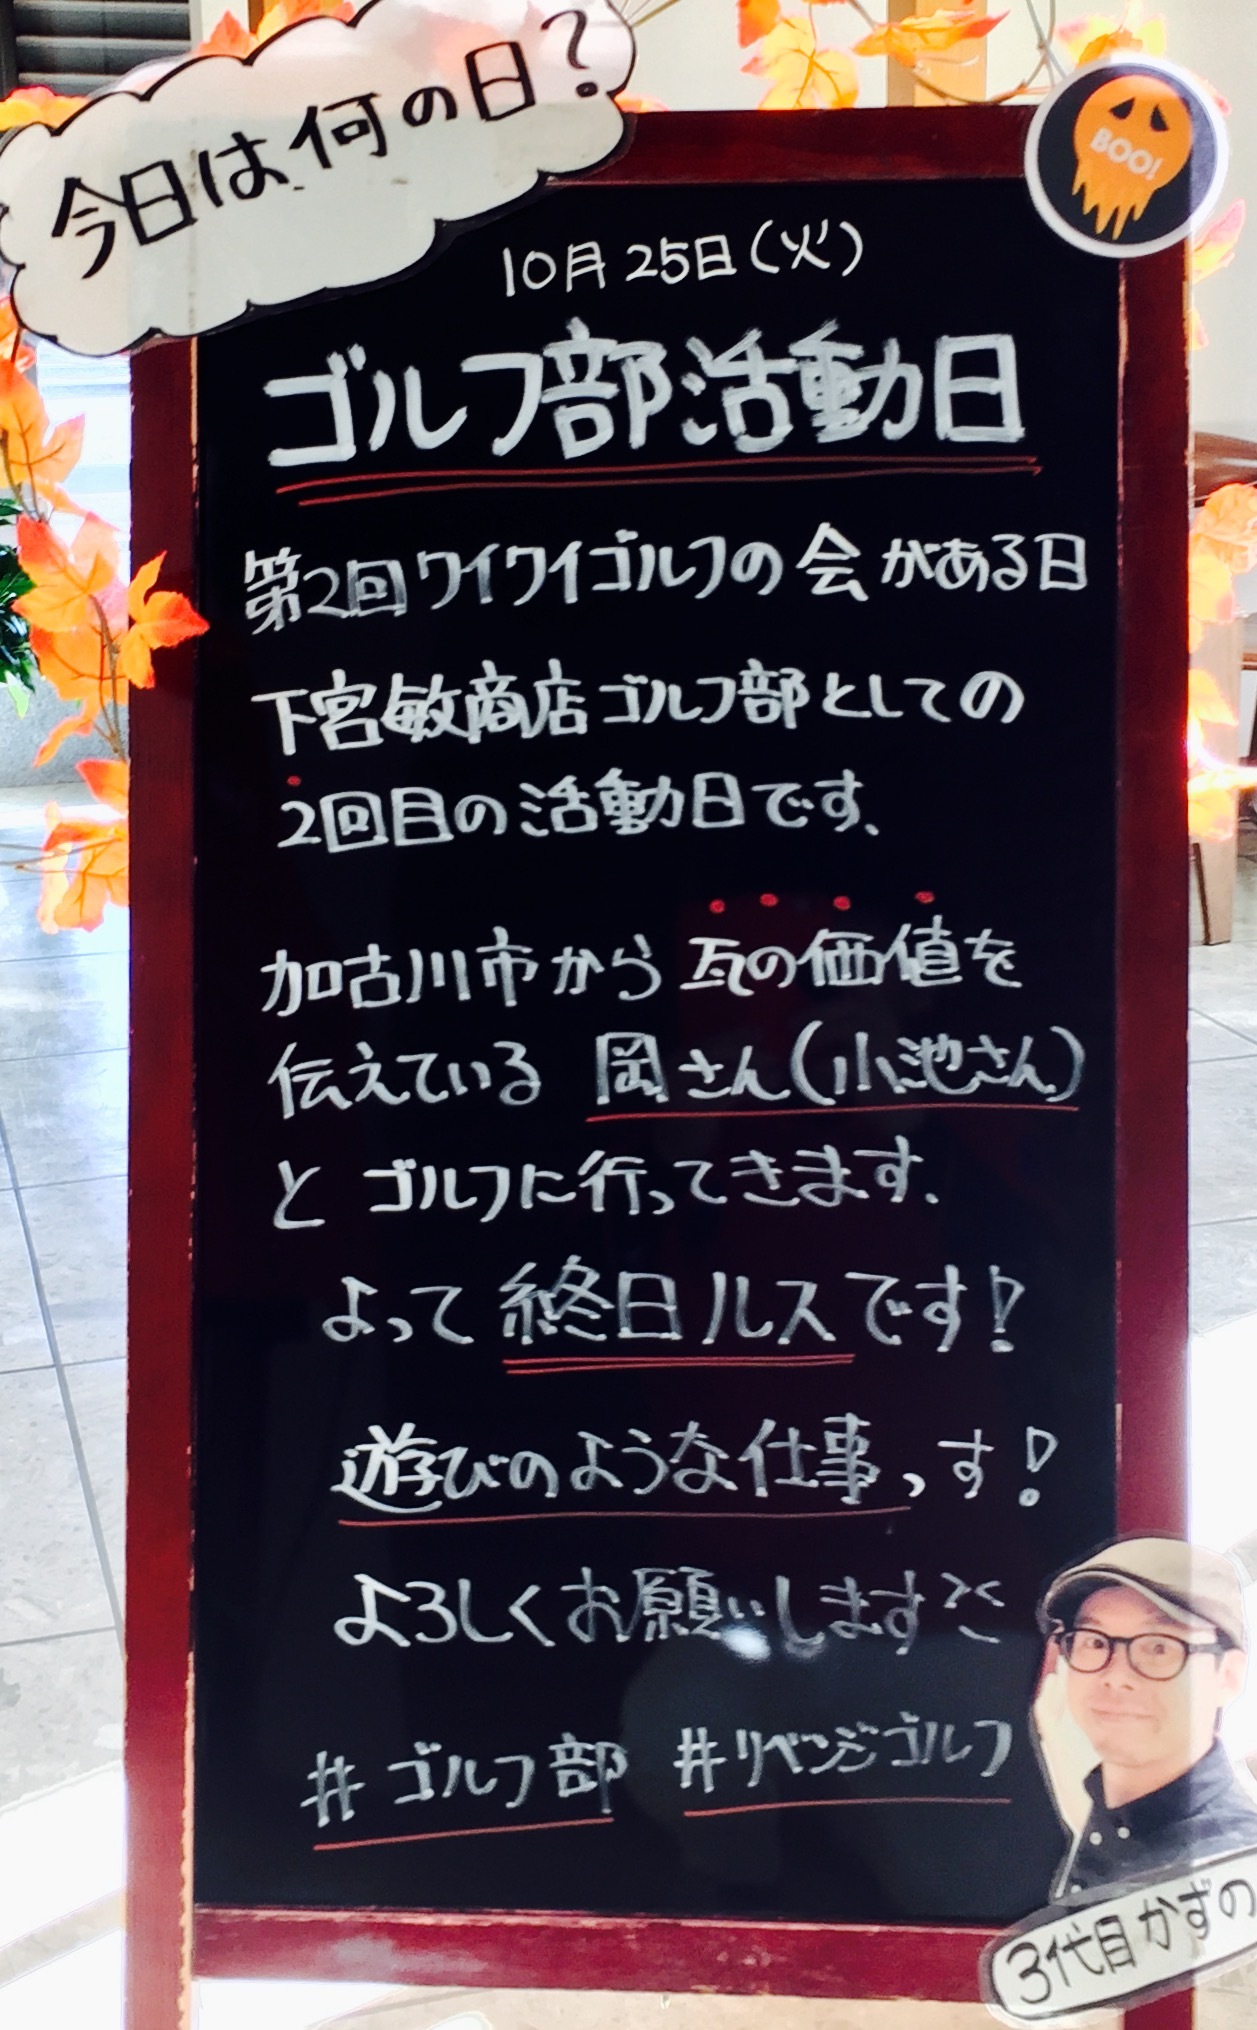 今日は何の日?
BOO!
10月25日(火)
ゴルフ部活動日
第2回ワイワイゴルフの会がある日
下宮敏商店ゴルフ部としての
2回目の活動日です、
加古川市から瓦の価値を
伝えている 岡さん(小池さん)
と ゴルフに行ってきます.
よって終日ルスです!
遊びのような仕事っす!
よろしくお願いします
#ゴルフ部 #リベンジゴルフ
3代目かずの